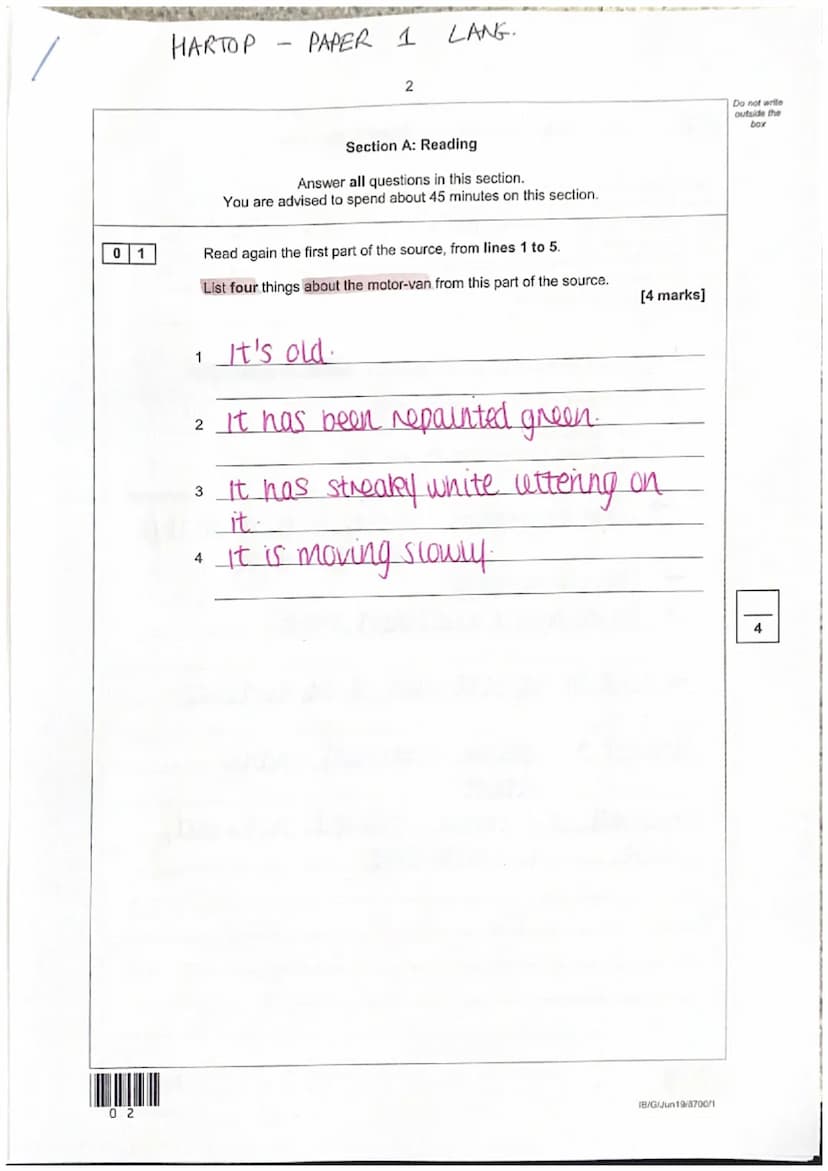 HARTOP - PAPER 1 LANG.
2
Do not write
outside the
box
Section A: Reading
Answer all questions in this section.
You are advised to spend about 45 minutes on this section.
0 1
Read again the first part of the source, from lines 1 to 5.
List four things about the motor-van from this part of the source.
[4 marks]
1 It's old.
2 It has been repainted green.
3 It has streaky white lettering on
it.
4 It is moving slowly.
4
0 2
IB/G/Jun19/8700/1